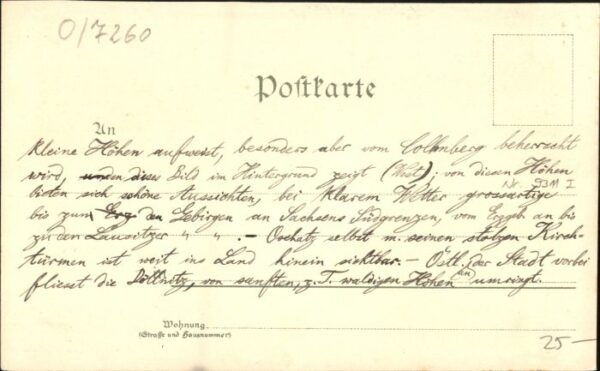 O/7260
Postkarte
An
kleine Höhen aufweist, besonders aber vom Collmberg beherrscht
wird, dieses Bild im Hintergrund zeigt (West); von diesen Höhen
bieten sich schöne Aussichten, bei klarem Wetter grossartige
Nr. I
bis zum den Gebirgen an Sachsens Südgrenzen, vom Erzgeb. an bis
zu den Lausitzer " " . – Oschatz selbst m. seinen stolzen Kirch-
türmen ist weit ins Land hinein sichtbar. – Östl. der Stadt vorbei
fliesst die Döllnitz, von sanften, z. T. waldigen Höhen umringt.
Wohnung
(Straße und Hausnummer)
25–